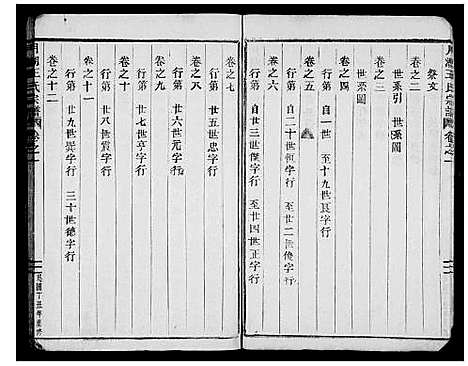 祭文
卷之三
世系引　世系圖
卷之四
世系圖
卷之五
自一世　至十九世良字行
卷之六
行第　自二十世恒字行　至廿二世俊字行
行第　自廿三世傑字行　至廿四世正字行
卷之七
行第　廿五世忠字行
卷之八
行第　廿六世元字行
卷之九
行第　廿七世亨字行
卷之十
行第　廿八世震字行
卷之十一
行第　廿九世巽字行　三十世德字行
卷之十二
王氏宗譜　卷之一
民國丁丑年重修